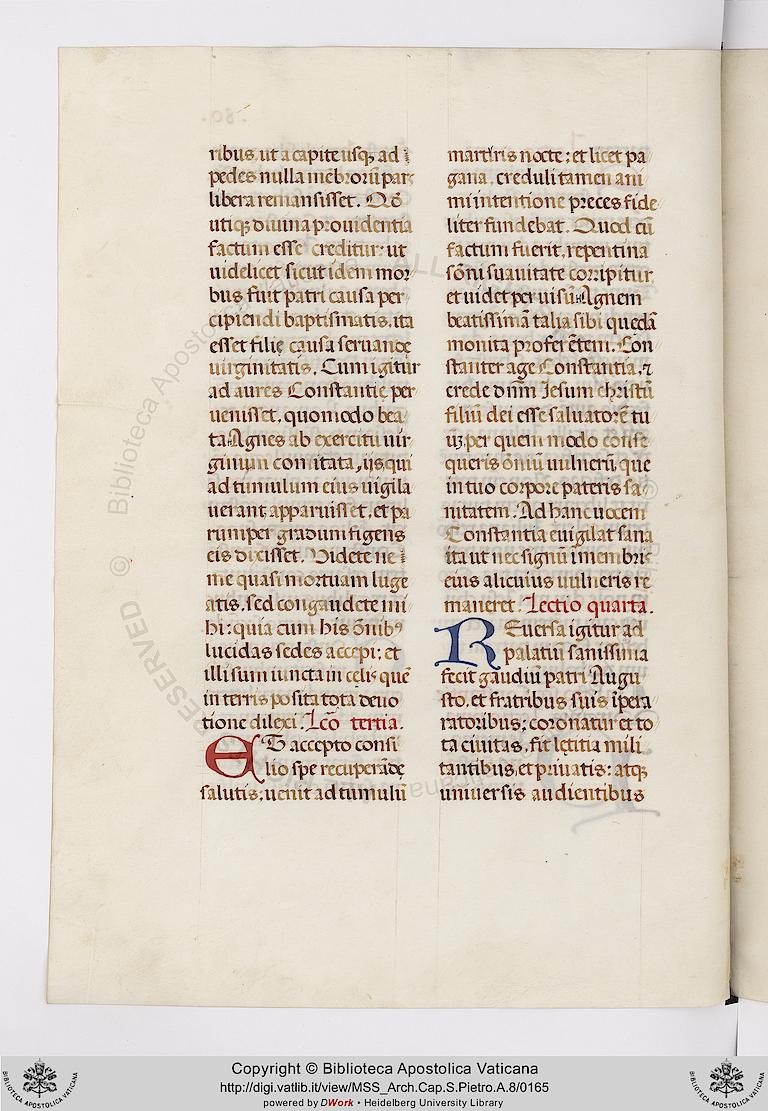 ribus, ut a capite usq; ad
pedes nulla mẽbrorũ pars
libera remansisset. Qđ
utiq; diuina prouidentia
factum esse creditur: ut
uidelicet sicut idem mor
bus fuit patri causa per
cipiendi baptismatis, ita
esset filię causa seruandę
uirginitatis. Cum igitur
ad aures Constantię per
uenisset, quomodo bea
ta Agnes ab exercitu uir
ginum comitata, iis qui
ad tumulum eius uigila
uerant apparuisset, et pa
rumper gradum figens
eis dixisset. Videte ne
me quasi mortuam luge
atis, sed congaudete mi
hi: quia cum his õnibꝰ
lucidas sedes accepi: et
illi sum iuncta in cęlis quẽ
in terris posita tota deuo
tione dilexi. Lcõ tertia.
ET accepto consi
lio spe recuperãdę
salutis: uenit ad tumulũ
martiris nocte: et licet pa
gana, creduli tamen ani
mi intentione preces fide
liter fundebat. Quod cũ
factum fuerit, repentina
sõni suauitate corripitur
et uidet per uisũ Agnem
beatissimã talia sibi quędã
monita proferẽtem. Con
stanter age Constantia, ⁊
crede dnm̃ Jesum christũ
filiũ dei esse saluatorẽ tu
ũ, per quem modo conse
queris õniũ uulnerũ, que
in tuo corpore pateris sa
nitatem. Ad hanc uocem
Constantia euigilat sana
ita ut nec signũ ĩ membris
eius alicuius uulneris re
maneret. Lectio quarta.
REuersa igitur ad
palatiũ sanissima
fecit gaudiũ patri Augu
sto, et fratribus suis ĩpera
ratoribus: coronatur et to
ta ciuitas, fit lętitia mili
tantibus, et priuatis: atq;
uniuersis audientibus
Copyright © Biblioteca Apostolica Vaticana
http://digi.vatlib.it/view/MSS_Arch.Cap.S.Pietro.A.8/0165
powered by DWork • Heidelberg University Library